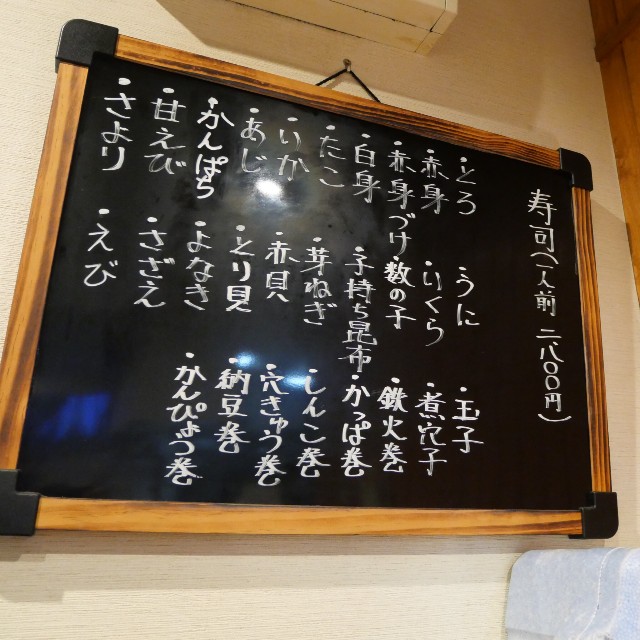 寿司(一人前 二八〇〇円)
・とろ
・赤身
・赤身づけ
・白身
・たこ
・いか
・あじ
・かんぱち
・甘えび
・さより
・うに
・いくら
・数の子
・子持ち昆布
・芽ねぎ
・赤貝
・とり貝
・よなき
・さざえ
・えび
・玉子
・煮穴子
・鉄火巻
・かっぱ巻
・しんこ巻
・穴きゅう巻
・納豆巻
・かんぴょう巻